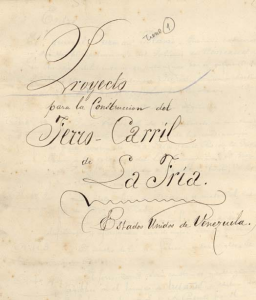 Tomo 1
Proyecto
para la Construccion del
Ferro-Carril
de
La Fría.
(Estados Unidos de Venezuela.)